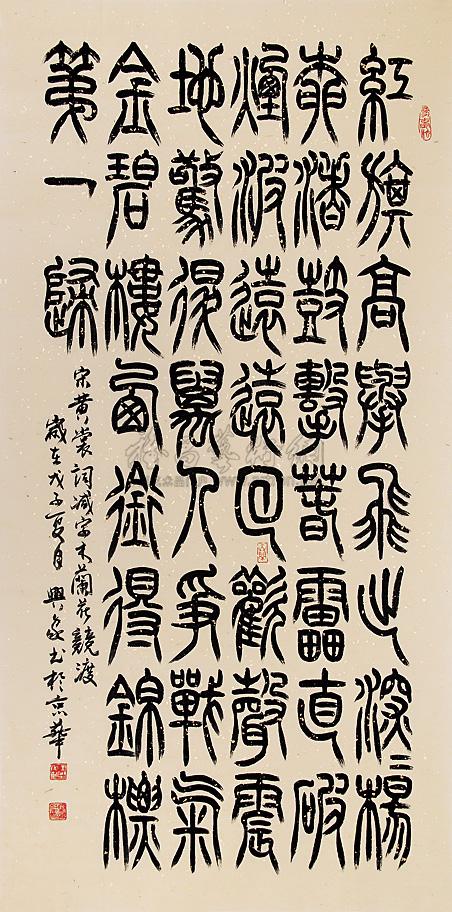 紅旗高舉飛出深〻楊
柳渚鼓擊春雷直破
煙波遠遠回歡聲震
地驚退萬人爭戰氣
金碧樓西銜得錦標
第一歸
宋黄裳詞減字木蘭花競渡
歲在戊子夏月興書於京華